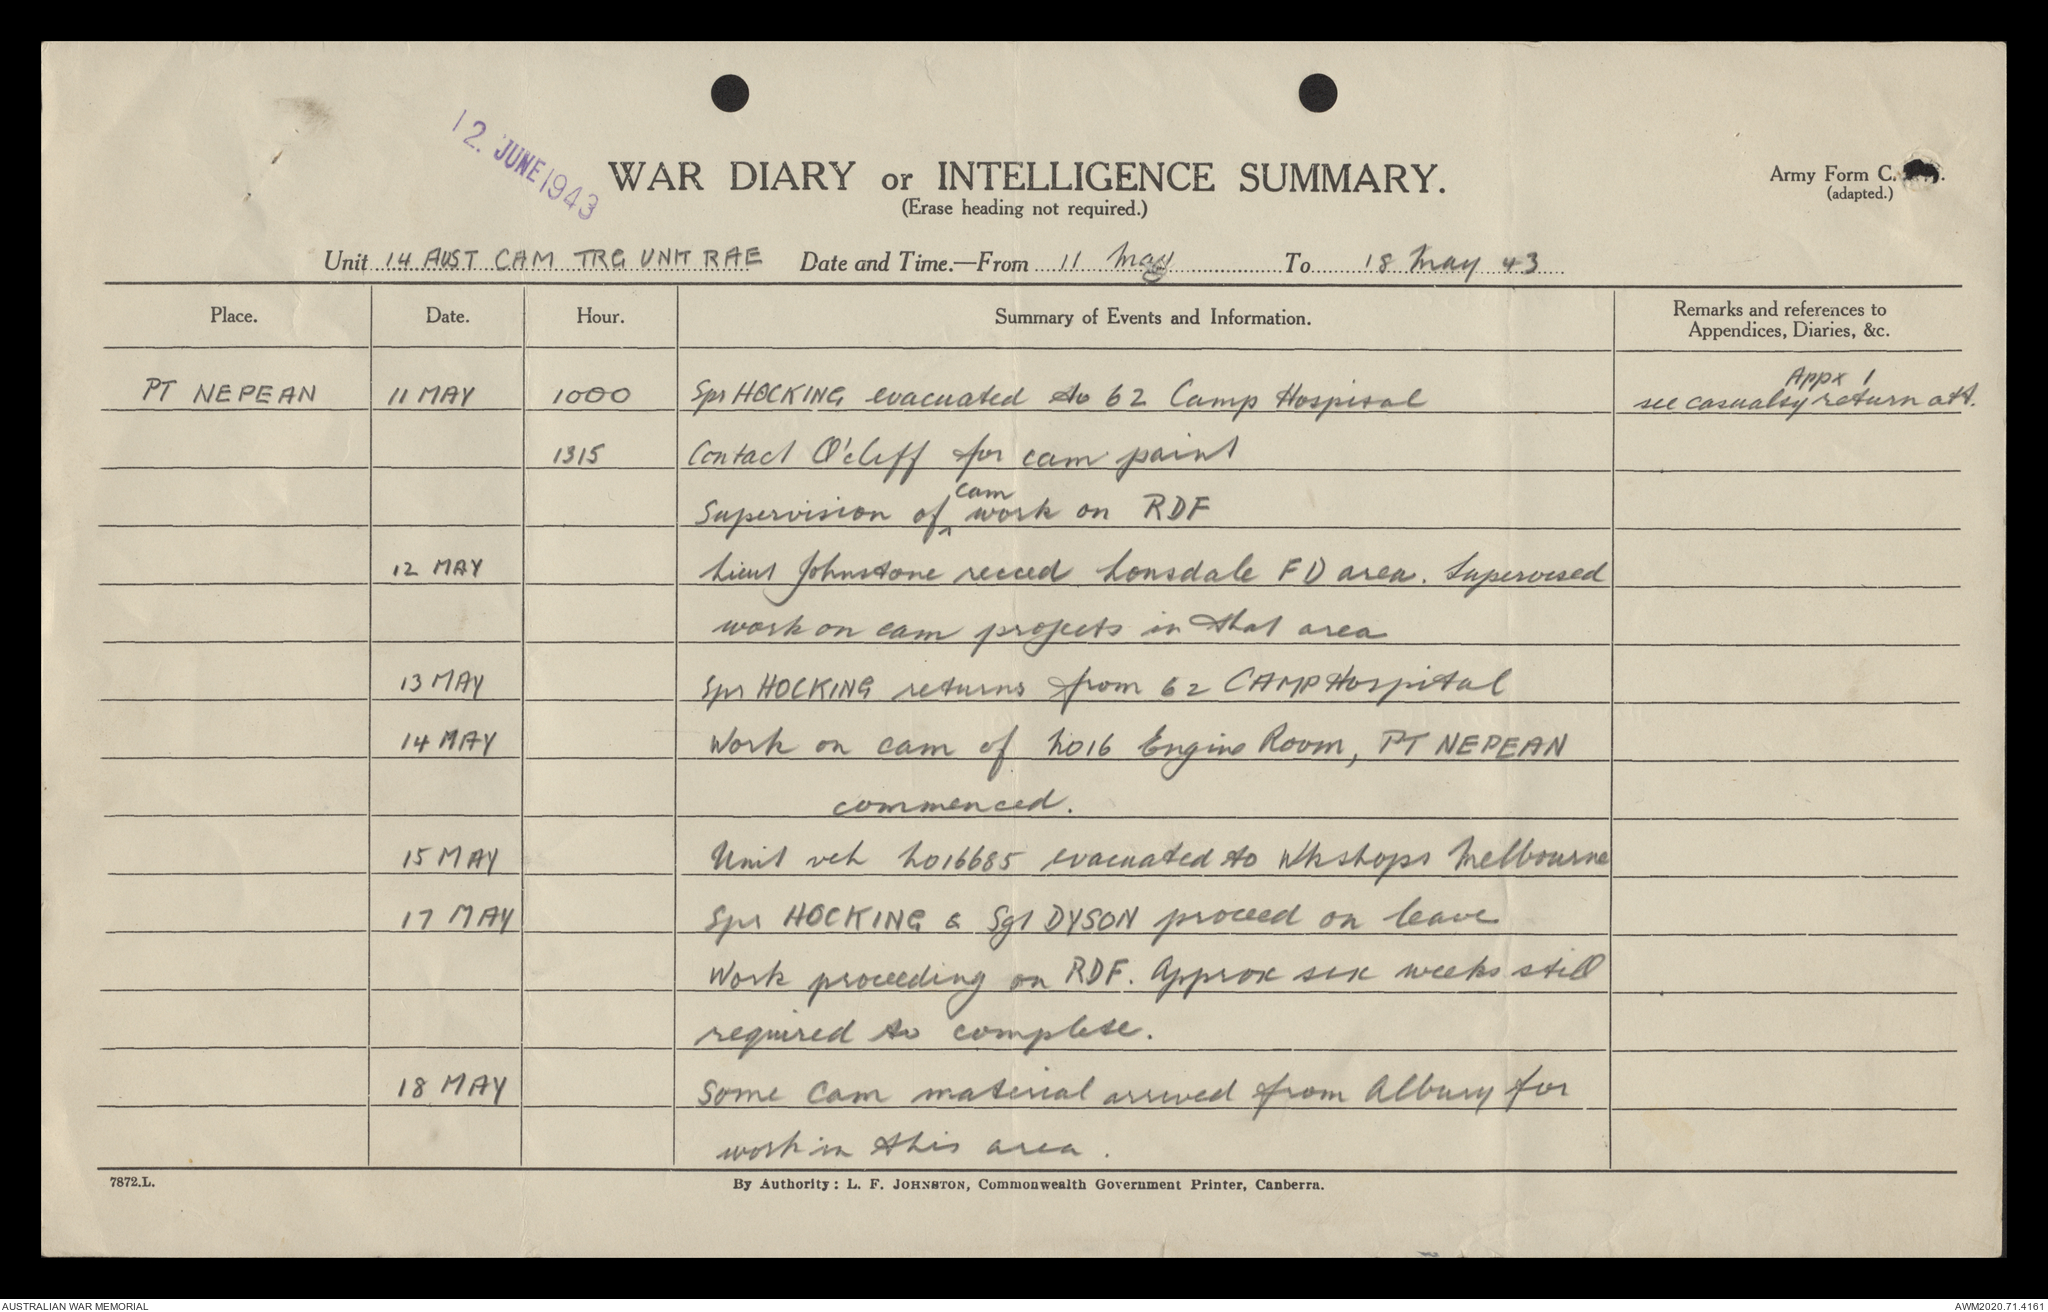 12. JUNE 1943
WAR DIARY or INTELLIGENCE SUMMARY.
(Erase heading not required.)
Army Form C.
(adapted.)
Unit 14 AUST CAM TRG UNIT RAE Date and Time.—From 11 May To 18 May 43
Place. Date. Hour. Summary of Events and Information. Remarks and references to
Appendices, Diaries, &c.
Appx 1
PT NEPEAN 11 MAY 1000 Spr HOCKING evacuated to 62 Camp Hospital see casualty return att.
1315 Contact O'cliff for cam paint
cam
Supervision of ^ work on RDF
12 MAY Lieut Johnstone recced Lonsdale FD area. Supervised
work on cam projects in that area
13 MAY Spr HOCKING returns from 62 CAMP Hospital
14 MAY Work on cam of No16 Engine Room, PT NEPEAN
commenced.
15 MAY Unit veh No16685 evacuated to Wkshops Melbourne
17 MAY Spr HOCKING & Sgt DYSON proceed on leave
Work proceeding on RDF. Approx six weeks still
required to complete.
18 MAY Some Cam material arrived from Albury for
work in this area.
7872.L. By Authority: L. F. JOHNSTON, Commonwealth Government Printer, Canberra.
AUSTRALIAN WAR MEMORIAL AWM2020.71.4161